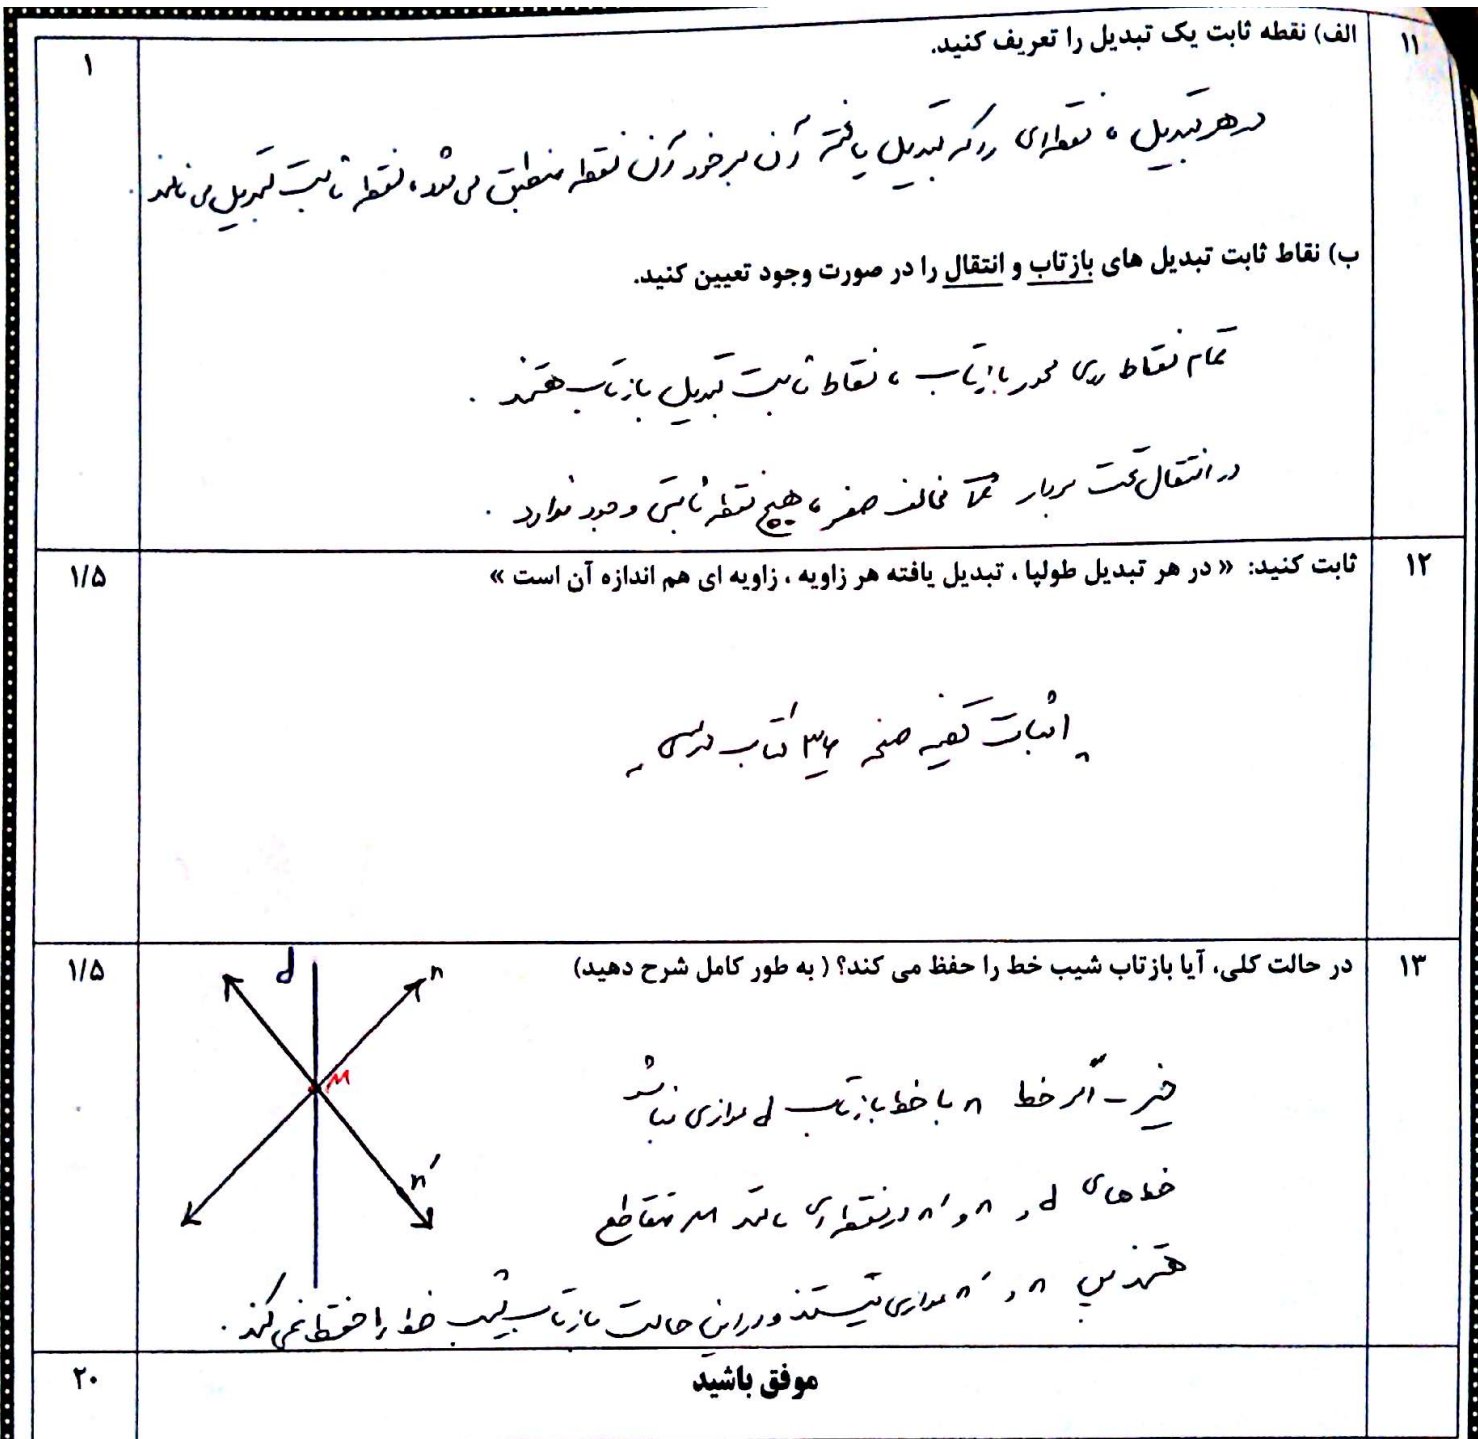 ۱۱
الف) نقطه ثابت یک تبدیل را تعریف کنید.
۱
در هر تبدیل ، نقطه‌ای را که تبدیل یافته آن بر خود آن نقطه منطبق می شود، نقطه ثابت تبدیل می نامند .
ب) نقاط ثابت تبدیل های بازتاب و انتقال را در صورت وجود تعیین کنید.
تمام نقاط روی محور بازتاب ، نقاط ثابت تبدیل بازتاب هستند .
در انتقال تحت بردار مخالف صفر ، هیچ نقطه ثابتی وجود ندارد .
۱۲
ثابت کنید: « در هر تبدیل طولپا ، تبدیل یافته هر زاویه ، زاویه ای هم اندازه آن است »
۱/۵
اثبات قضیه صفحه کتاب درسی
۱۳
در حالت کلی، آیا بازتاب شیب خط را حفظ می کند؟ ( به طور کامل شرح دهید)
۱/۵
d
n
M
n′
خیر - اگر خط n با خط بازتاب d موازی نباشد
خط های d و n و n′ در نقطه ای مانند M متقاطع
هستند پس n و n′ موازی نیستند و در این حالت بازتاب شیب خط را حفظ نمی کند .
موفق باشید
۲۰